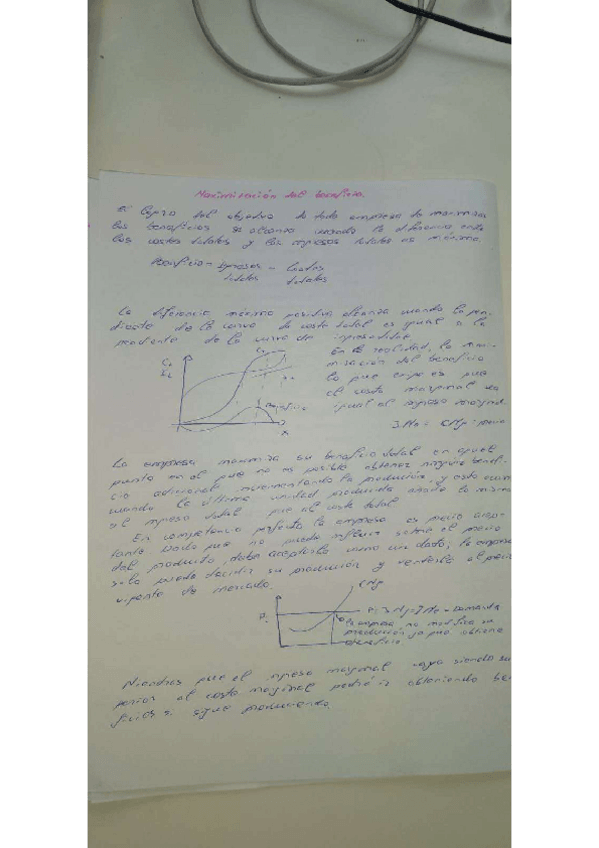 Maximización del beneficio
El logro del objetivo de toda empresa de maximizar
los beneficios se alcanza cuando la diferencia entre
los costes totales y los ingresos totales es máxima.
Beneficio = Ingresos - Costes
totales totales
La diferencia máxima positiva alcanza cuando la pen-
diente de la curva de coste total es igual a la
pendiente de la curva de ingresos
En la realidad, la maxi-
mización del beneficio
lo que exige es que
el coste marginal sea
igual al ingreso margin
Beneficio
La empresa maximiza su beneficio total en aquel
punto en el que no es posible obtener ningún benefi-
cio adicional incrementando la producción, y esto
cuando la última unidad producida añade lo mismo
al ingreso total que al coste total
En competencia perfecta la empresa es precio acep-
tante dado que no puede influir sobre el precio
del producto, debe aceptarlo como un dato; la empresa
solo puede decidir su producción y venderla al
vigente de mercado.
CMg
Demanda
la empresa no modifica su
producción ya que obtiene
beneficio
Mientras que el ingreso marginal vaya siendo su
perior al coste marginal podrá ir obteniendo be
ficios si sigue produciendo.